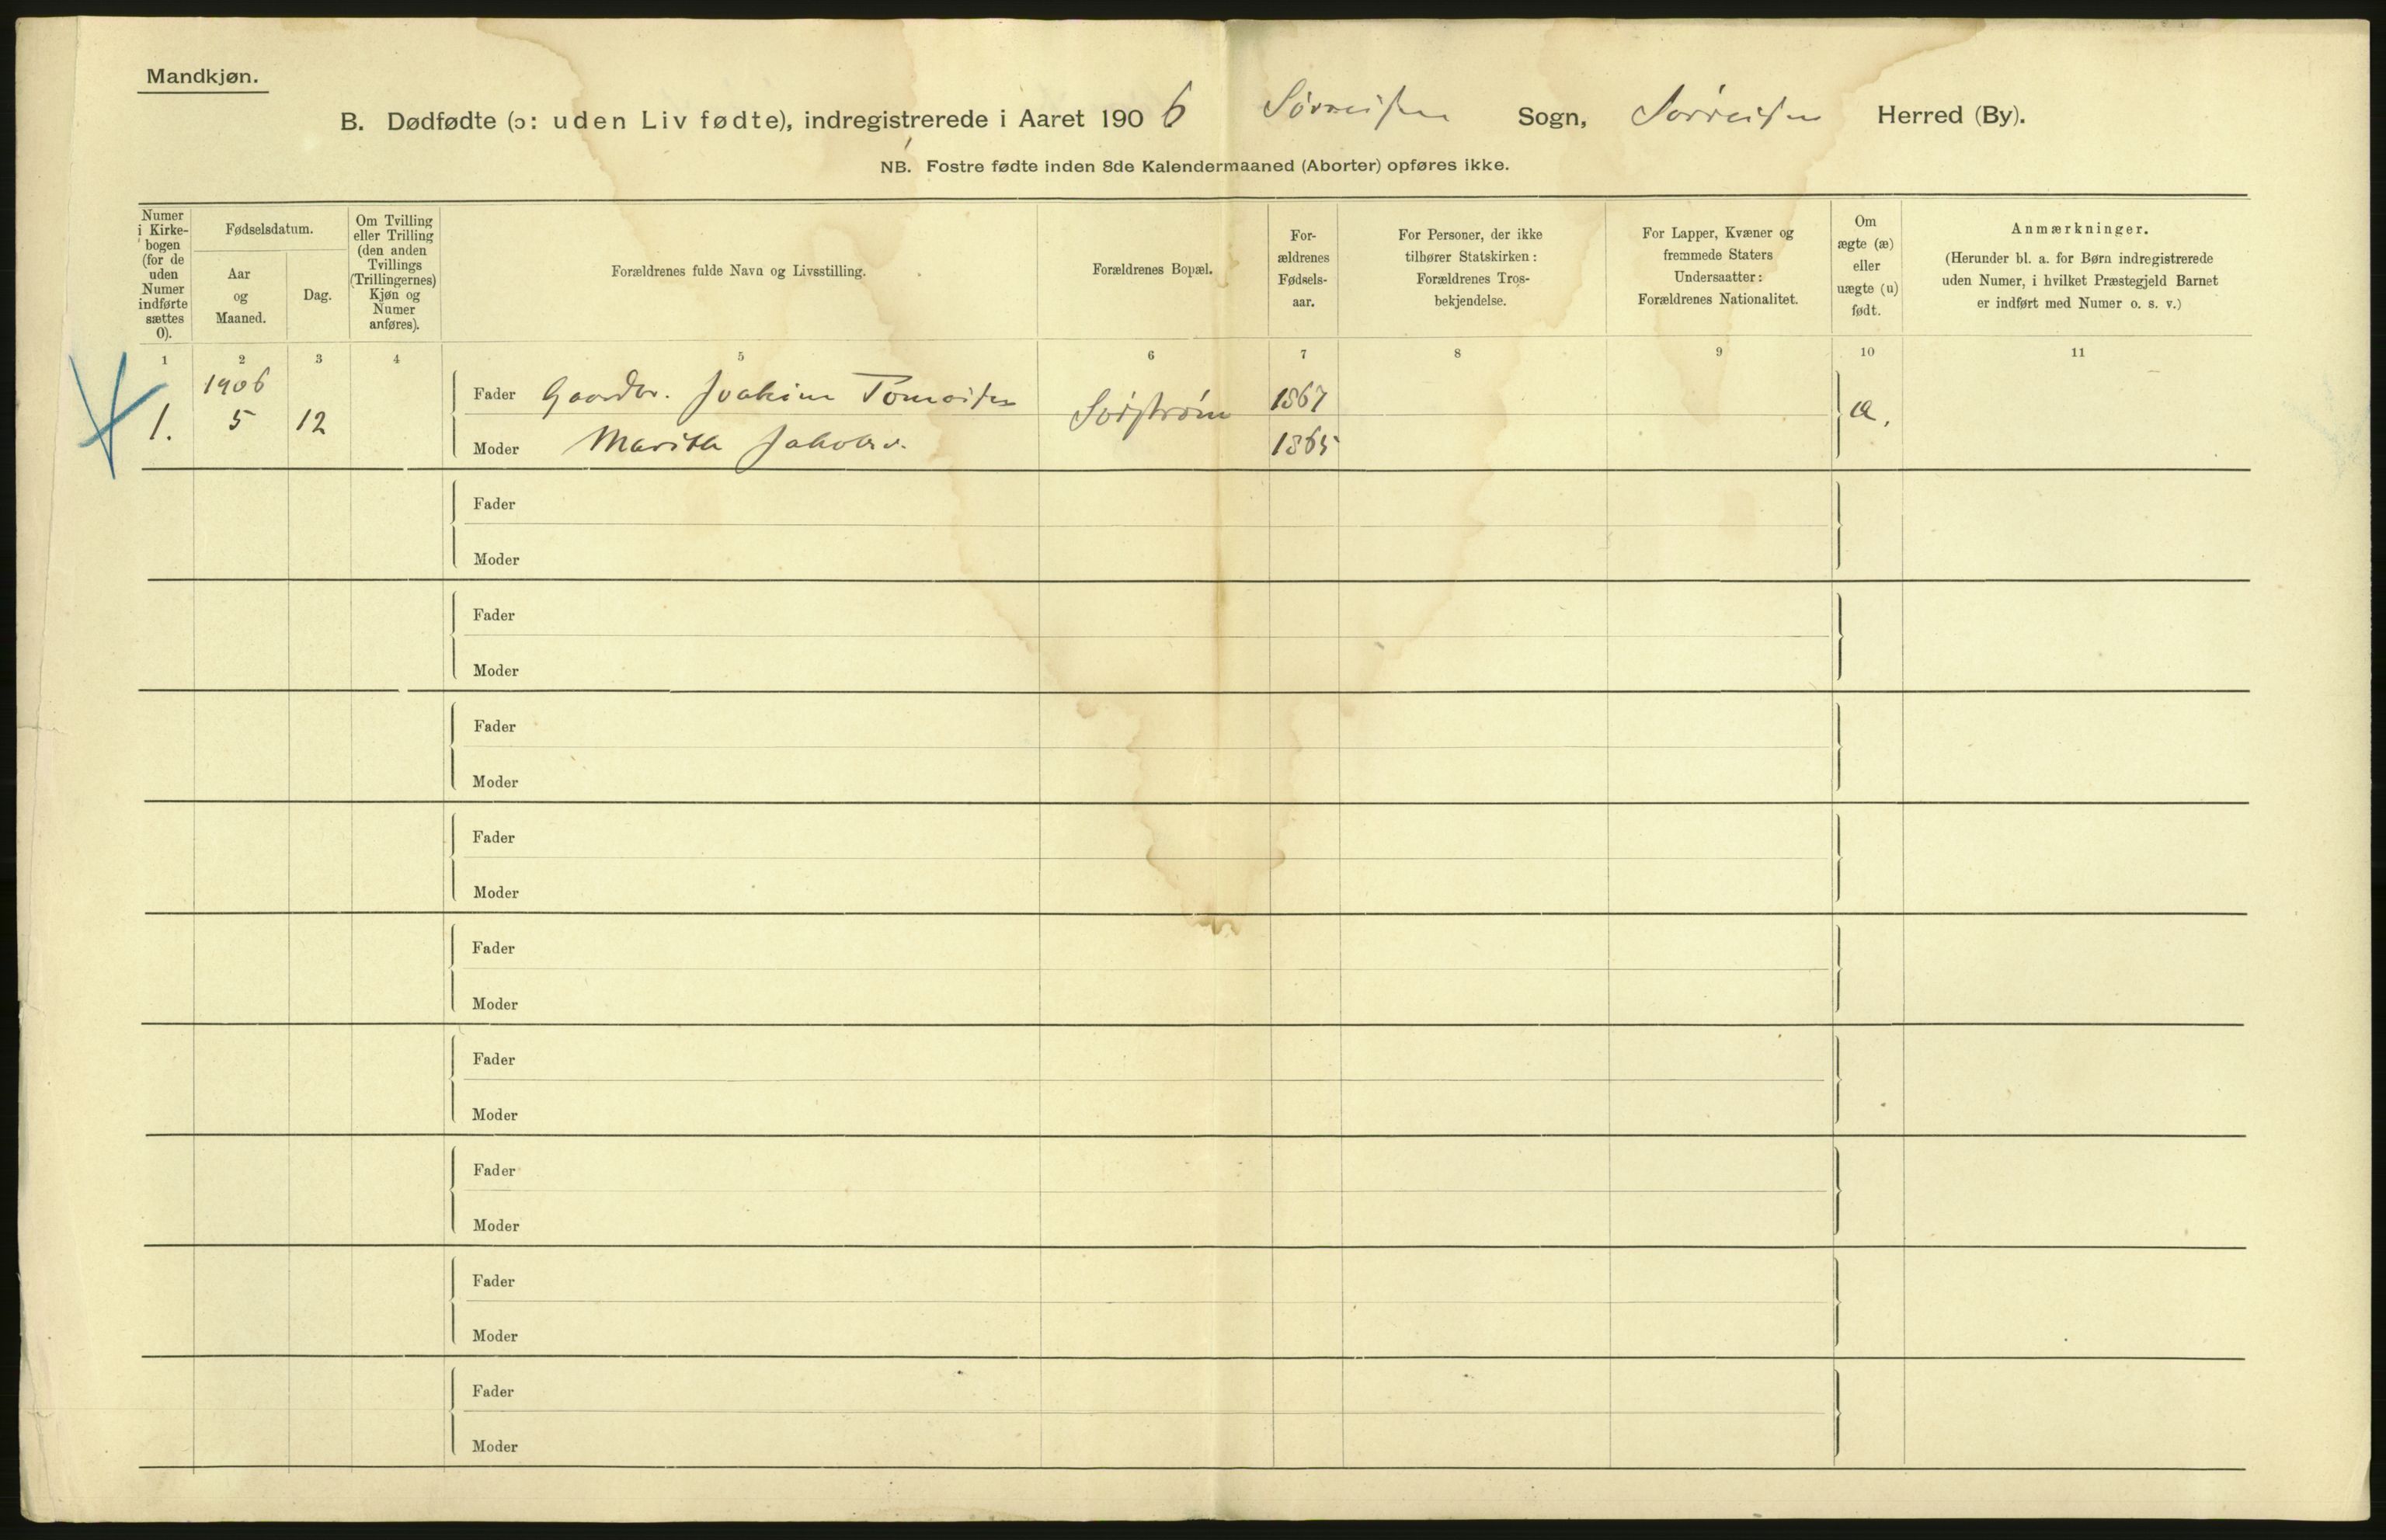 Mandkjøn.
B. Dødfødte (ɔ: uden Liv fødte), indregistrerede i Aaret 1906 Sørreisen Sogn, Sørreisen Herred (By).
NB. Fostre fødte inden 8de Kalendermaaned (Aborter) opføres ikke.
Numer
i Kirke-
bogen
(for de
uden
Numer
indførte
sættes
0).
Fødselsdatum.
Aar
og
Maaned.
Dag.
Om Tvilling
eller Trilling
(den anden
Tvillings
(Trillingernes)
Kjøn og
Numer
anføres).
Forældrenes fulde Navn og Livsstilling.
Forældrenes Bopæl.
For-
ældrenes
Fødsels-
aar.
For Personer, der ikke
tilhører Statskirken:
Forældrenes Tros-
bekjendelse.
For Lapper, Kvæner og
fremmede Staters
Undersaatter:
Forældrenes Nationalitet.
Om
ægte (æ)
eller
uægte (u)
født.
Anmærkninger.
(Herunder bl. a. for Børn indregistrerede
uden Numer, i hvilket Præstegjeld Barnet
er indført med Numer o. s. v.)
1 2 3 4 5 6 7 8 9 10 11
1906
1. 5 12
Fader Gaardbr. Joakim 1867
Moder Jakobsd. 1865
æ.
Fader
Moder
Fader
Moder
Fader
Moder
Fader
Moder
Fader
Moder
Fader
Moder
Fader
Moder
Fader
Moder
Fader
Moder